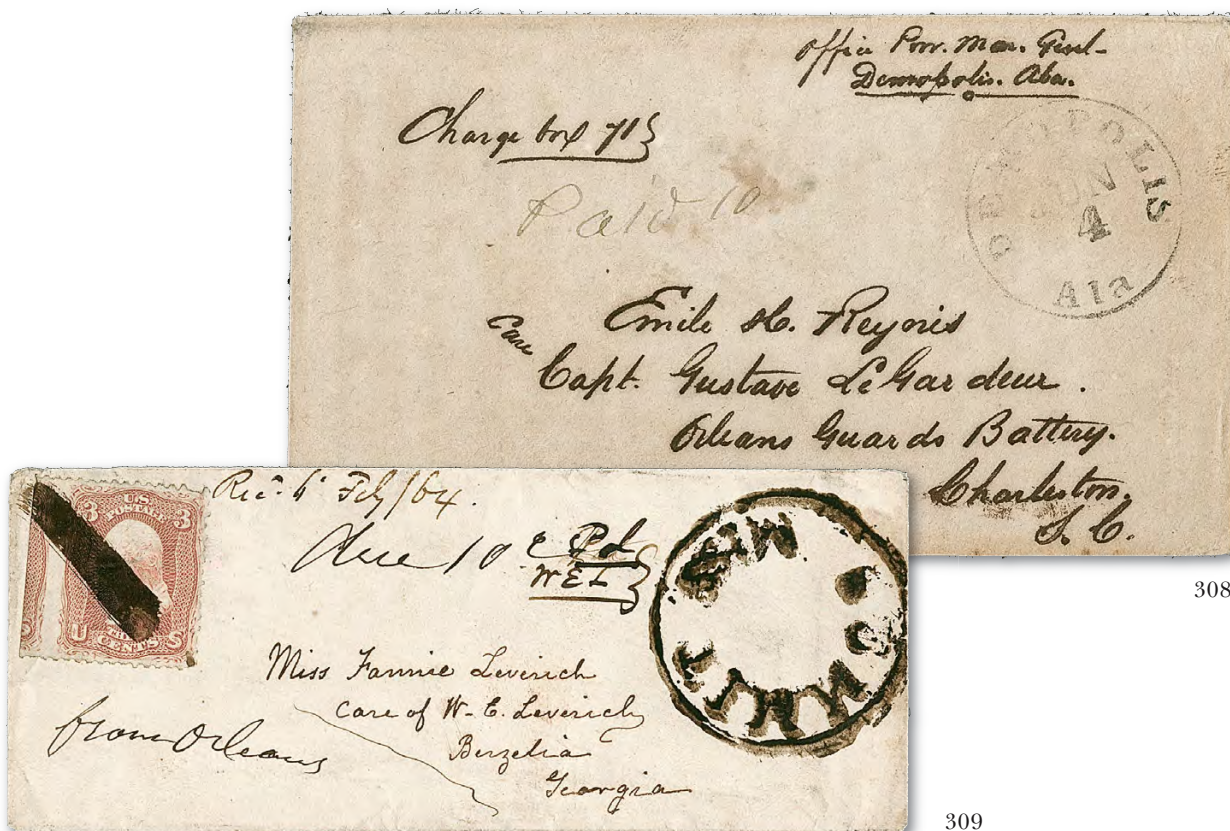 Office Pro. Mar. Genl-
Demopolis. Aba.
Charge box 71
Paid 10
DEMOPOLIS
JUN
4
Ala
Emile H. Reynès
Care
Capt. Gustave LeGardeur.
Orleans Guards Battery.
Charleston,
S. C.
308
Rec. 6 Feby/64.
3 U.S. 3
POSTAGE
U CENTS S
Due 10 c Pd
W E L
SUMMIT
MIS
Miss Fannie Leverich
Care of W-E. Leverich
Berzelia
Georgia
from Orleans
309